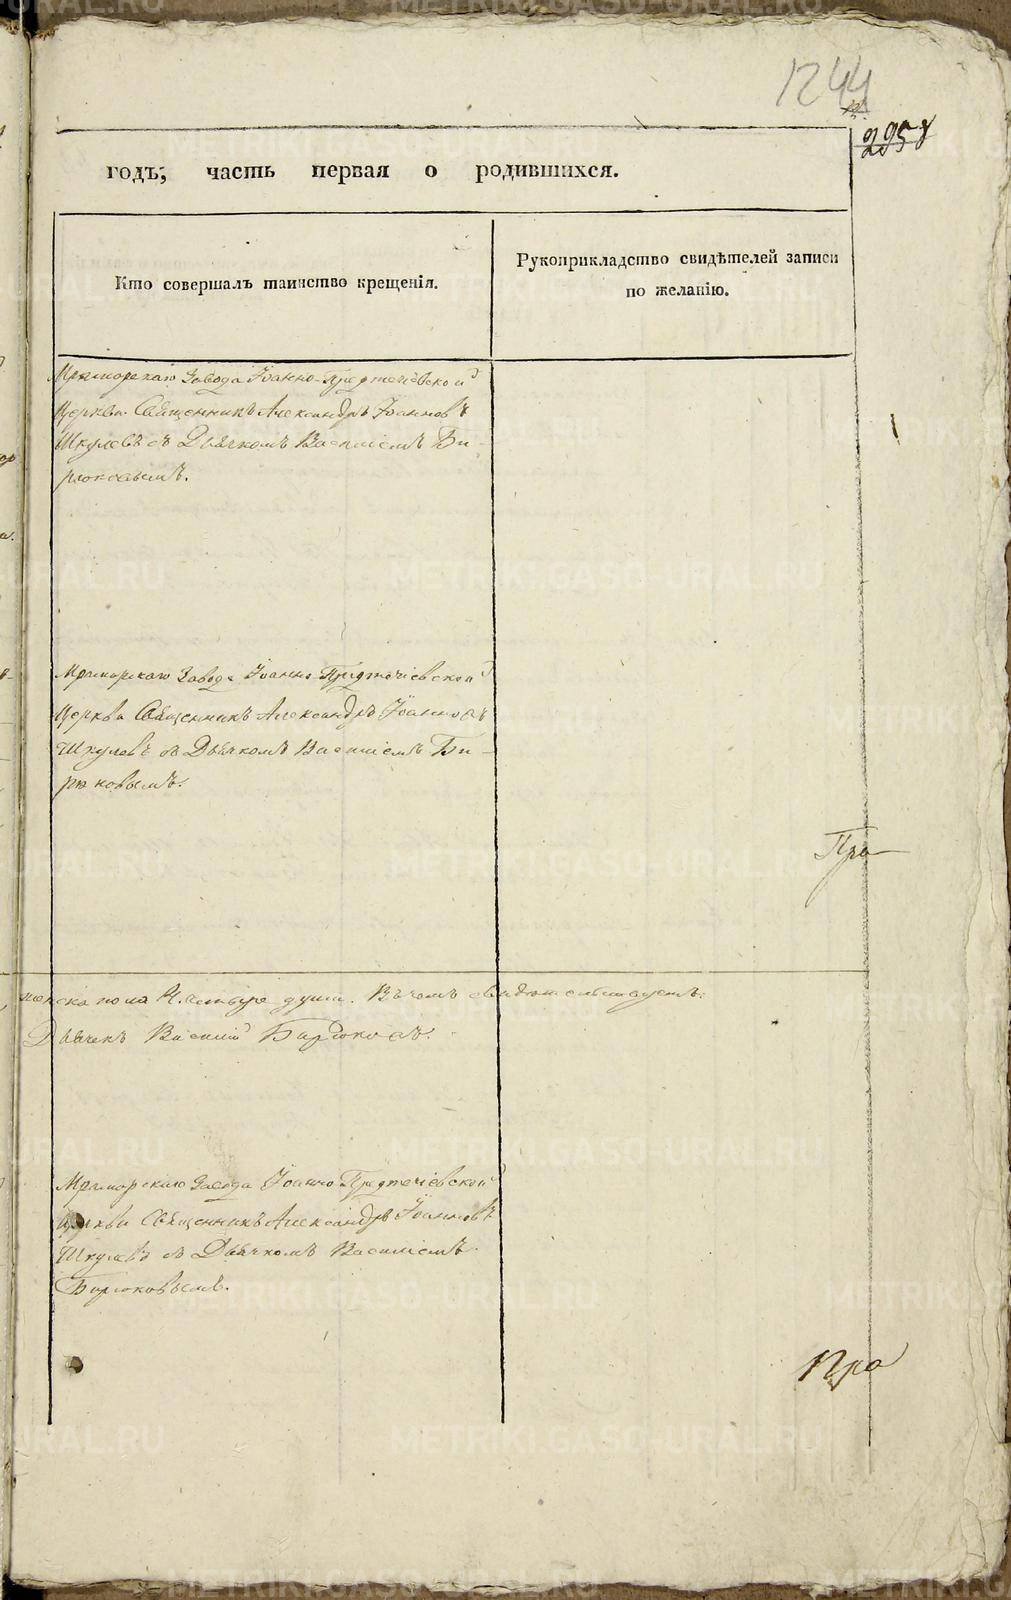 1244
295
годъ, часть первая о родившихся.
Кто совершалъ таинство крещенія.
Рукоприкладство свидѣтелей записи
по желанію.
Мраморскаго Завода Іоанно-Предтечіевской
Церкви Священникъ Александръ Іоанновъ
Шкулевъ съ Дьячкомъ Василіемъ Би-
рюковымъ.
Мраморскаго Завода Іоанно-Предтечіевской
Церкви Священникъ Александръ Іоанновъ
Шкулевъ съ Дьячкомъ Василіемъ Би-
рюковымъ.
Пра
женска пола Четыре души. Въ чемъ свидѣтельствуетъ:
Дьячекъ Василій Бирюковъ.
Мраморскаго Завода Іоанно-Предтечіевской
Церкви Священникъ Александръ Іоанновъ
Шкулевъ съ Дьячкомъ Василіемъ
Бирюковымъ.
Пра
METRIKI.GASO-URAL.RU